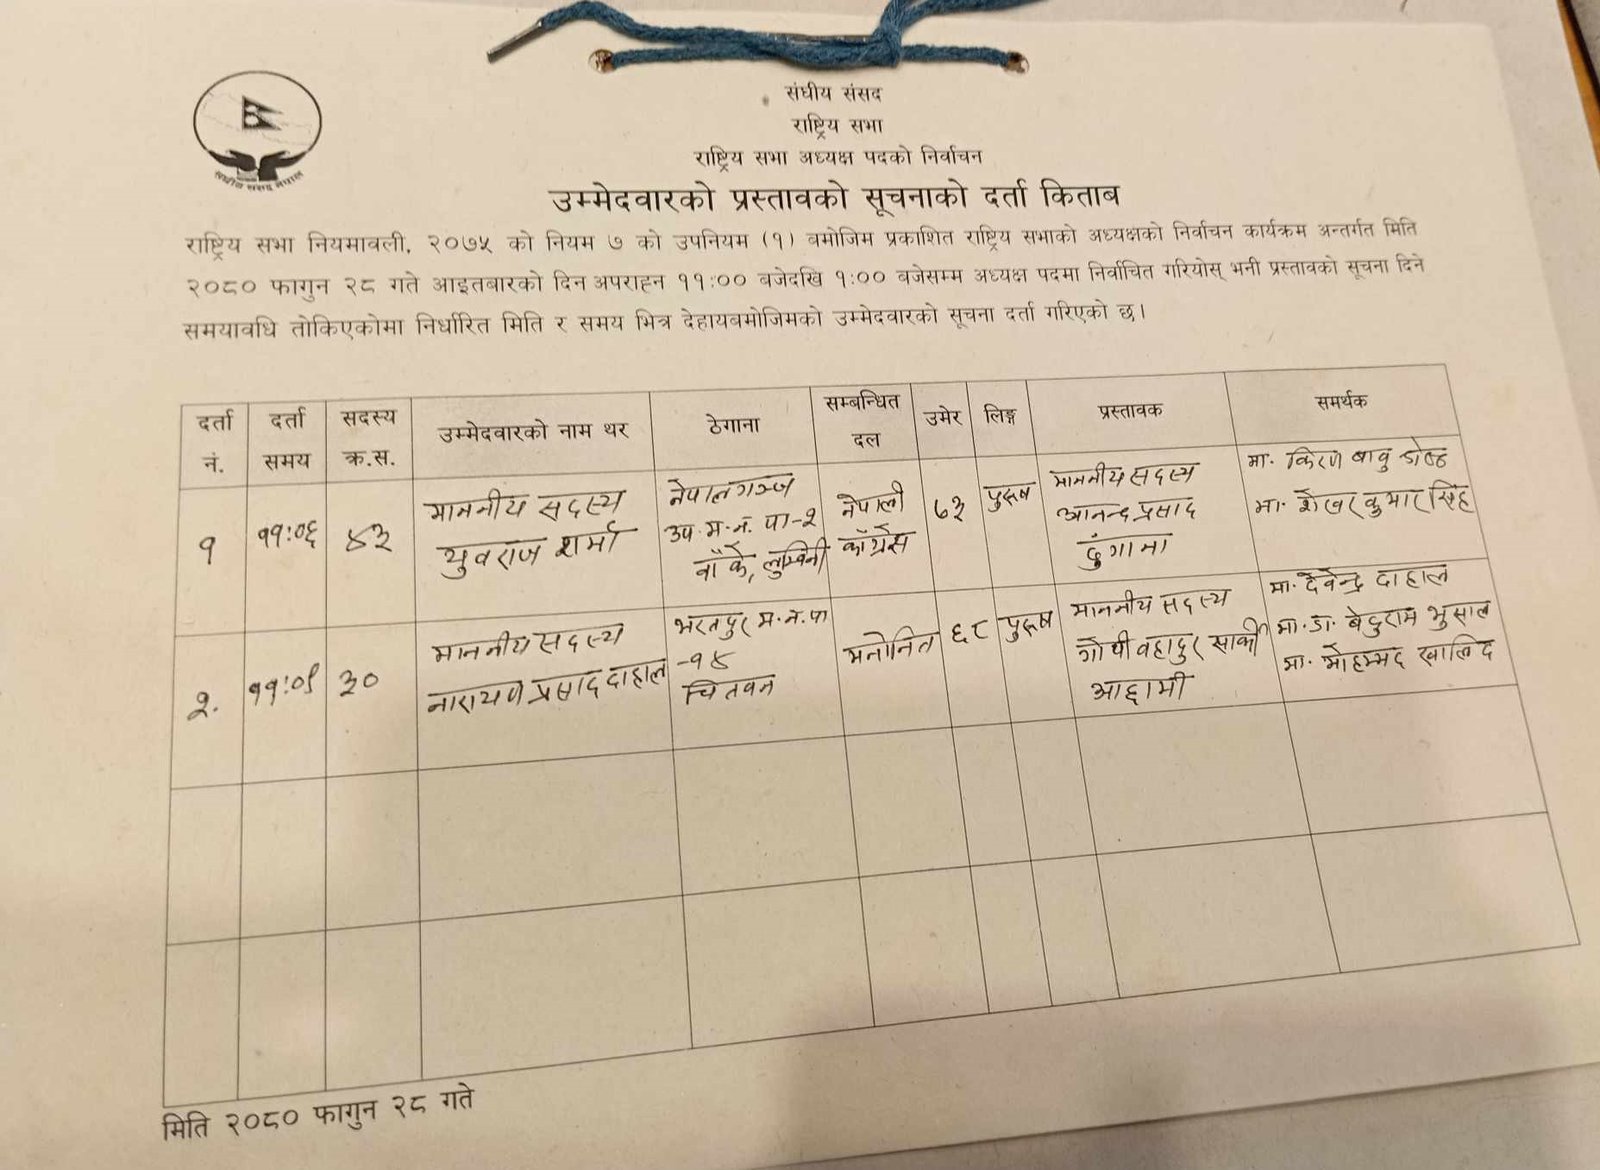 संघीय संसद
राष्ट्रिय सभा
राष्ट्रिय सभा अध्यक्ष पदको निर्वाचन
उम्मेदवारको प्रस्तावको सूचनाको दर्ता किताब
संघीय संसद नेपाल
राष्ट्रिय सभा नियमावली, २०७५ को नियम ७ को उपनियम (१) बमोजिम प्रकाशित राष्ट्रिय सभाको अध्यक्षको निर्वाचन कार्यक्रम अन्तर्गत मिति
२०८० फागुन २८ गते आइतबारको दिन अपराह्न ११:०० बजेदखि १:०० बजेसम्म अध्यक्ष पदमा निर्वाचित गरियोस् भनी प्रस्तावको सूचना दिने
समयावधि तोकिएकोमा निर्धारित मिति र समय भित्र देहायबमोजिमको उम्मेदवारको सूचना दर्ता गरिएको छ।
दर्ता नं.
दर्ता समय
सदस्य क्र.स.
उम्मेदवारको नाम थर
ठेगाना
सम्बन्धित दल
उमेर
लिङ्ग
प्रस्तावक
समर्थक
१
११:०६
४३
माननीय सदस्य
युवराज शर्मा
नेपालगञ्ज
उप.म.न. पा-२
बाँके, लुम्बिनी
नेपाली
काँग्रेस
७३
पुरूष
माननीय सदस्य
आनन्द प्रसाद
ढुंगाना
मा. किरण बाबु
मा. शेखर कुमार सिंह
२.
११:०९
३०
माननीय सदस्य
नारायण प्रसाद दाहाल
भरतपुर म.न.पा
-१४
चितवन
मनोनित
६८
पुरूष
माननीय सदस्य
गोपी बहादुर सार्की
आछामी
मा. देवेन्द्र दाहाल
मा. डा. बेदुराम भुसाल
मा. मोहम्मद खालिद
मिति २०८० फागुन २८ गते